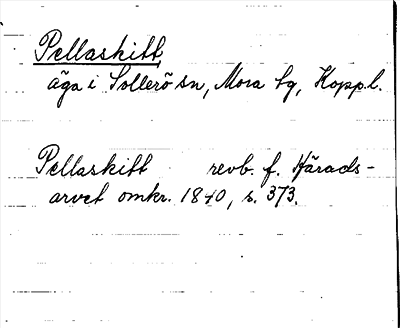 Pellaskift
äga i Sollerö sn, Mora tg, Kopp.l.
Pellaskift revb. f. Härads-
arvet omkr. 1840, s. 373.